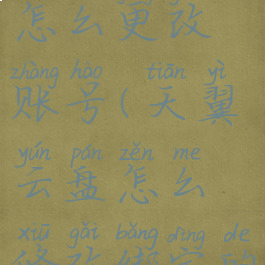 怎么更改
zhàng hào tiān yì
账号(天翼
yún pán zěn me
云盘怎么
xiū gǎi bǎng dìng de
修改绑定的